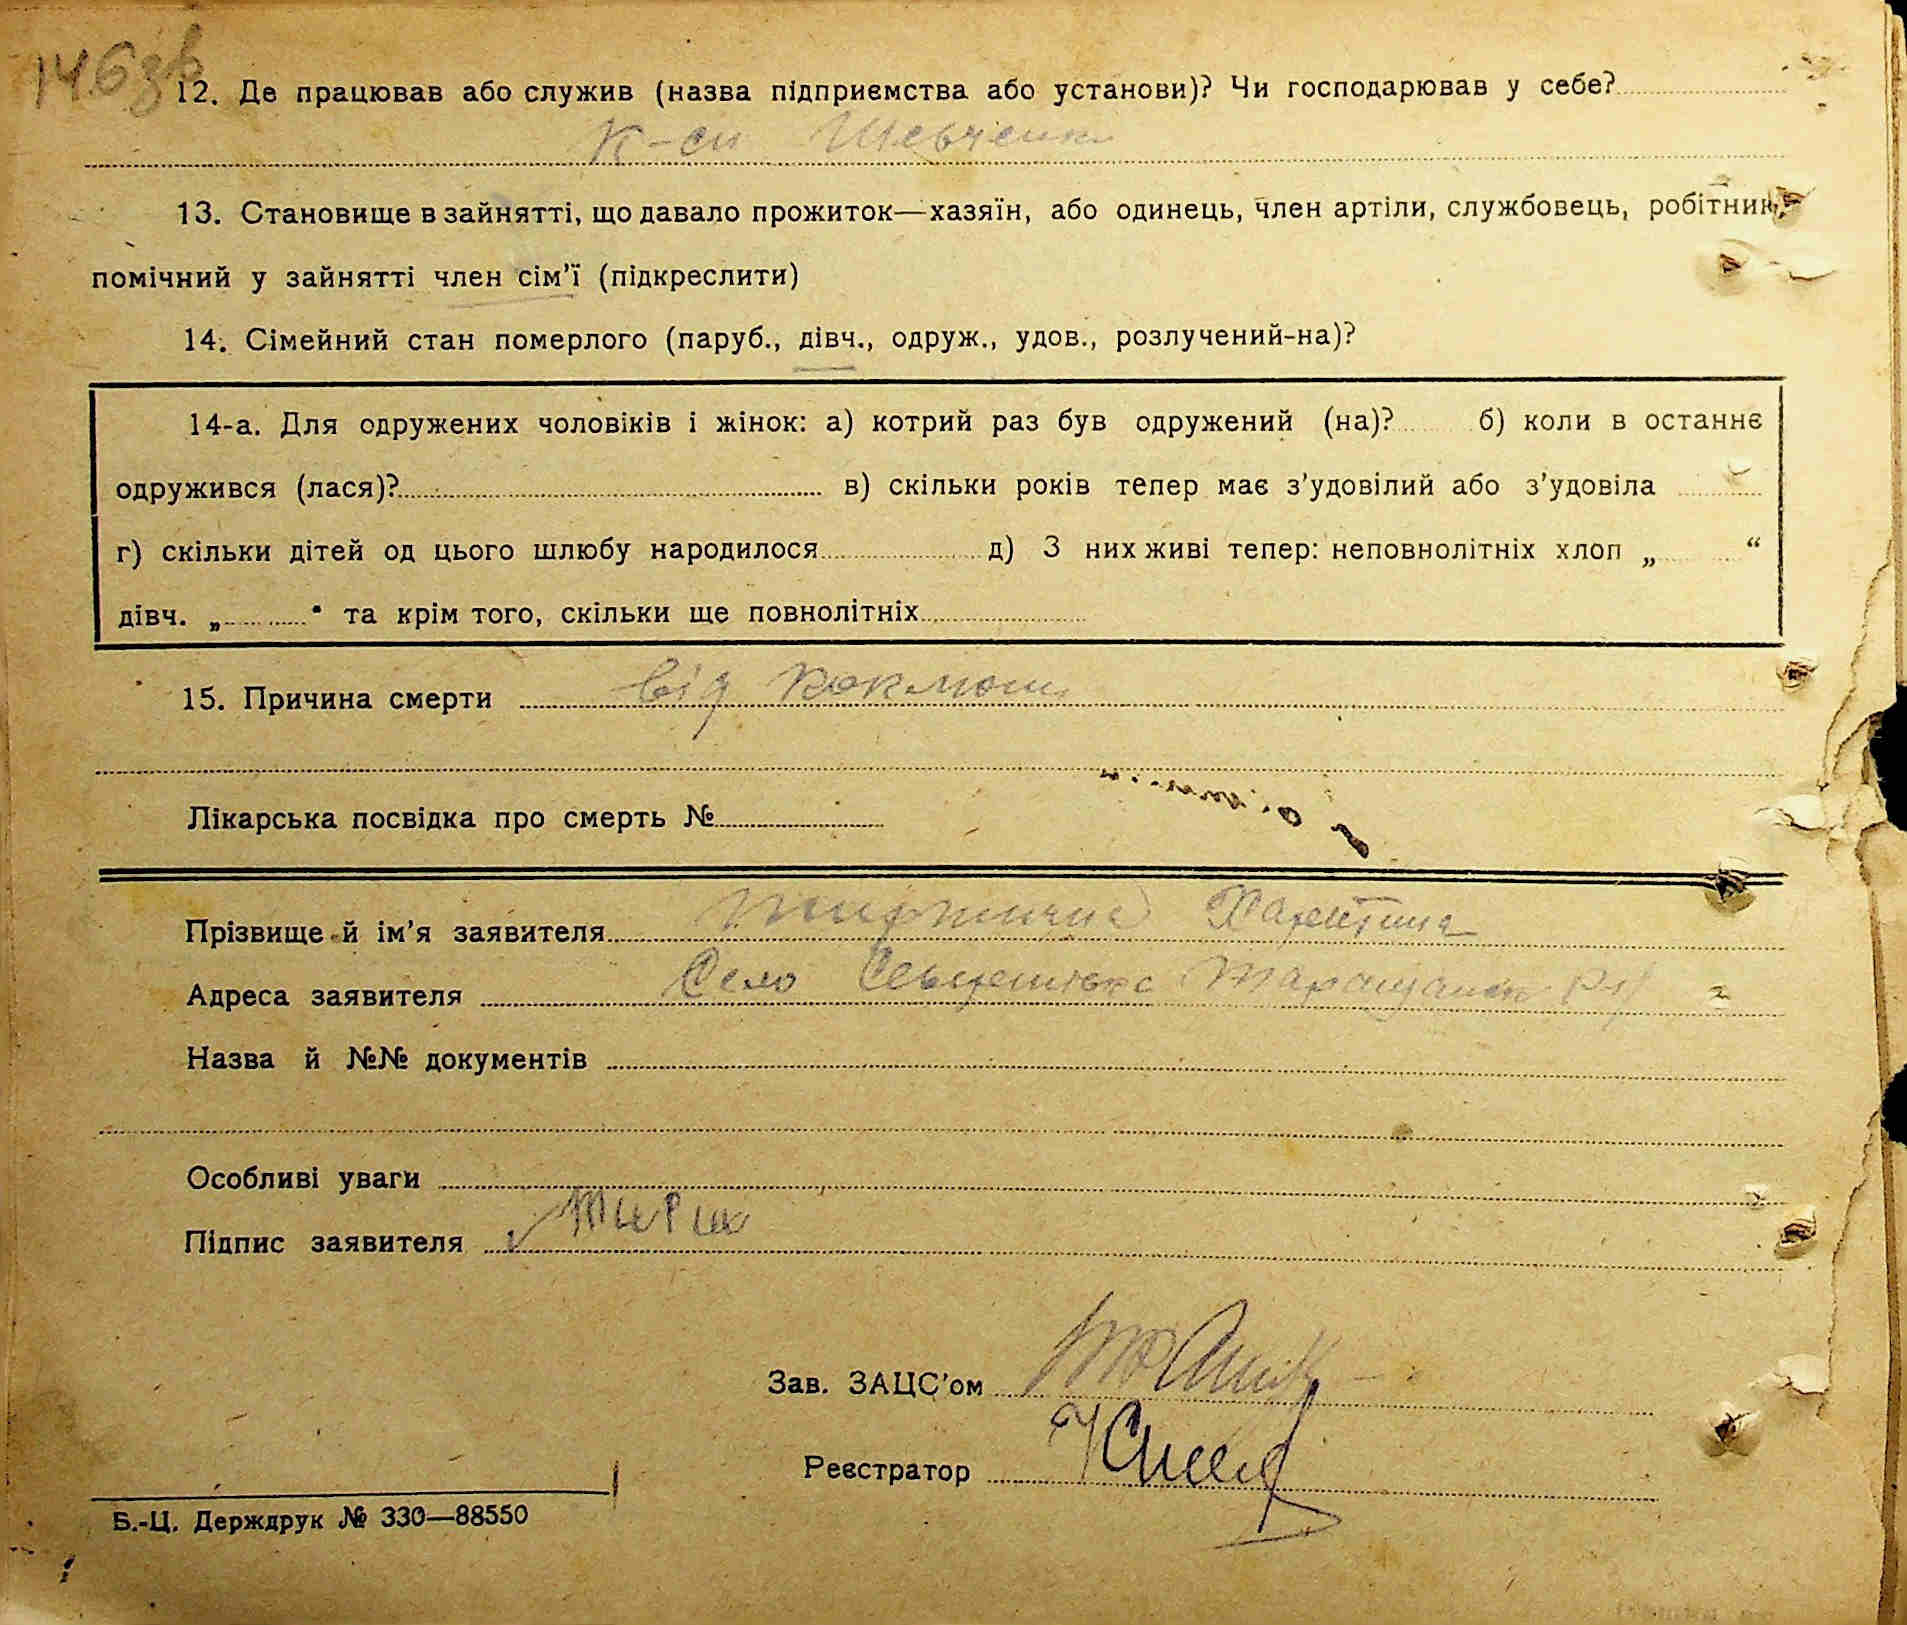 146зв
12. Де працював або служив (назва підприємства або установи)? Чи господарював у себе?
К-сп Шевченк
13. Становище в зайнятті, що давало прожиток—хазяїн, або одинець, член артіли, службовець, робітник,
помічний у зайнятті член сім’ї (підкреслити)
14. Сімейний стан померлого (паруб., дівч., одруж., удов., розлучений-на)?
14-а. Для одружених чоловіків і жінок: а) котрий раз був одружений (на)? б) коли в останнє
одружився (лася)? в) скільки років тепер має з’удовілий або з’удовіла
г) скільки дітей од цього шлюбу народилося д) З них живі тепер: неповнолітніх хлоп „ “
дівч. „ “ та крім того, скільки ще повнолітніх
15. Причина смерти від коклюш
Лікарська посвідка про смерть №
Прізвище й ім’я заявителя Харитина
Адреса заявителя Село Таращанск р-н
Назва й №№ документів
Особливі уваги
Підпис заявителя
Зав. ЗАЦС’ом
Реєстратор
Б.-Ц. Держдрук № 330—88550